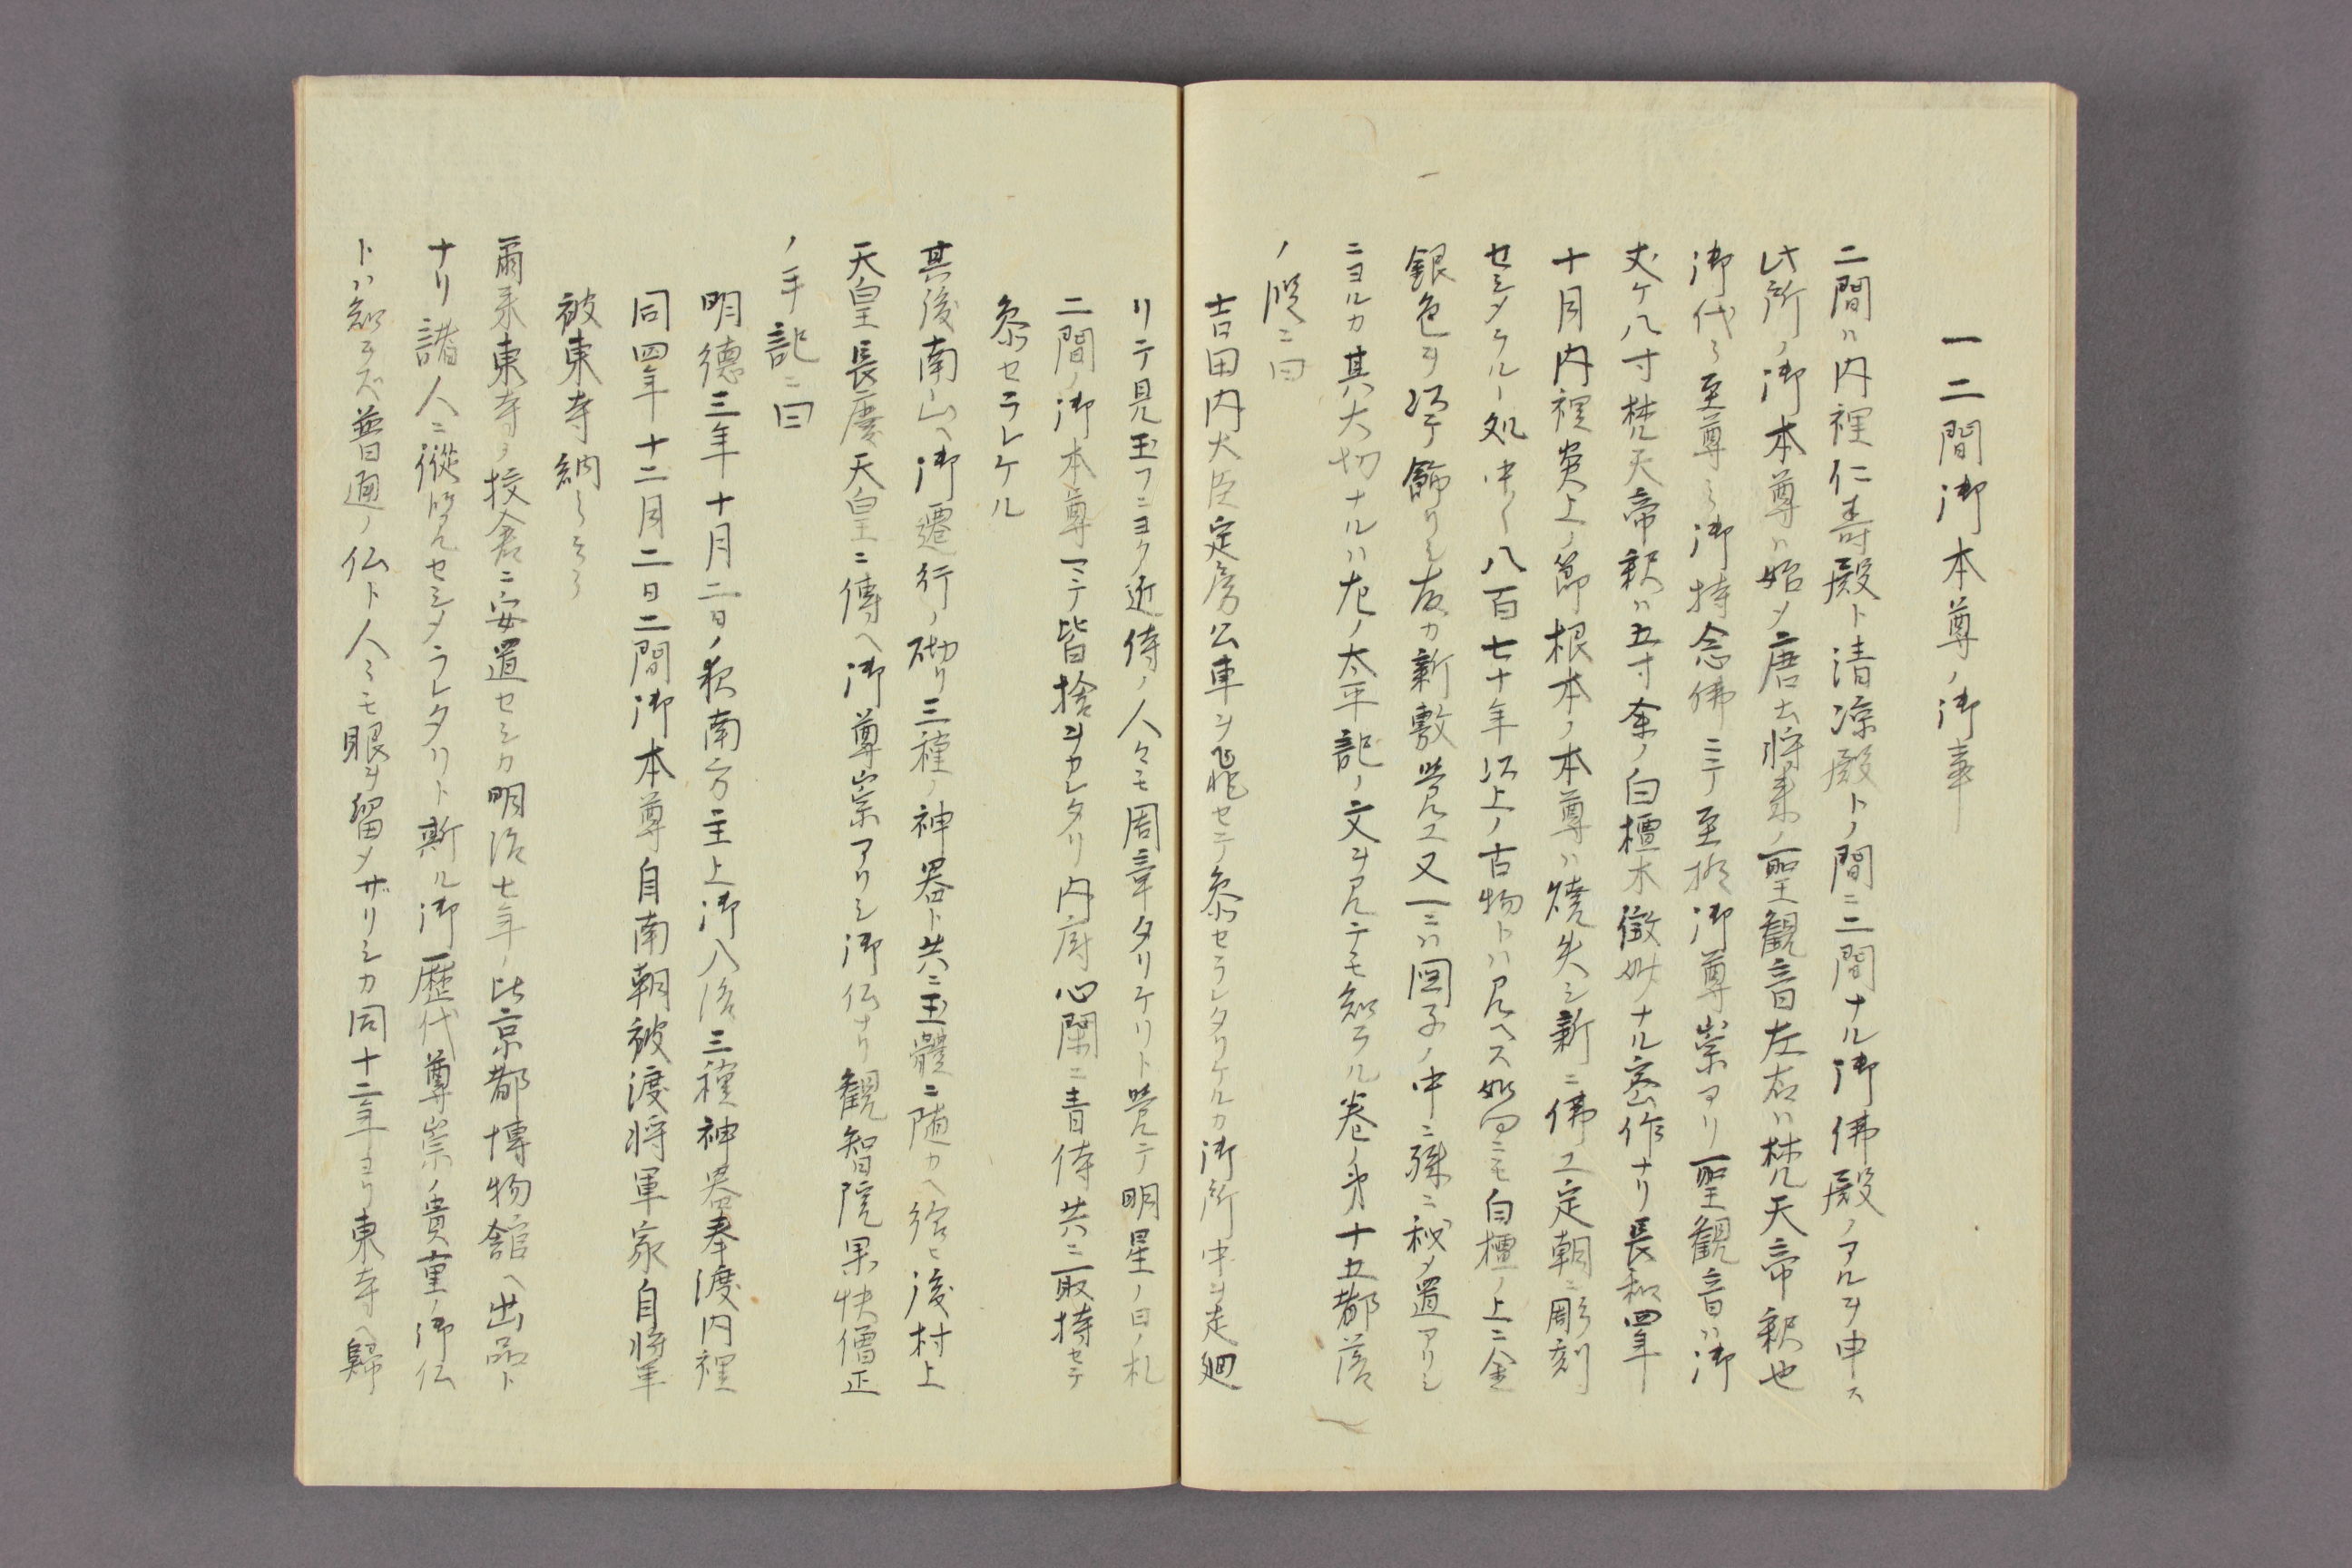 一二間御本尊ノ御事
二間ハ内裡仁寿殿ト清凉殿トノ間ニ二間ナル御佛殿ノアルヲ申ス
此所ノ御本尊ハ始メ唐ゟ将来ノ聖観音左右ハ梵天帝釈也
御代々至尊ノ御持念佛ニテ至極御尊崇アリ聖観音ハ御
丈ケ八寸梵天帝釈ハ五寸余ノ白檀木微妙ナル密作ナリ長和四年
十月内裡炎上ノ節根本ノ本尊ハ焼失シ新ニ佛工定朝ニ彫刻
セシメケル処中々八百七十年以上ノ古物トハ見ヘス如何ニモ白檀ノ上ニ金
銀色ヲ以テ飾リシ故カ新敷覚エ又一ニハ図子ノ中ニ殊ニ秘メ置アリシ
ニヨルカ其大切ナルハ左ノ太平記ノ文ヲ見テモ知ラル巻ノ第十五都落
ノ段ニ曰
吉田内大臣定房公車ヲ飛セテ参セラレタリケルカ御所中ヲ走廻
リテ見玉フニヨク近侍ノ人々モ周章タリケリト覚テ明星ノ日ノ札
二間ノ御本尊マテ皆捨ヲカレタリ内府心閑ニ青侍共ニ取持セテ
参セラレケル
其後南山ヘ御遷行ノ砌リ三種ノ神器ト共ニ玉體ニ随カヘ給ヒ後村上
天皇長慶天皇ニ傳ヘ御尊崇アリシ御仏ナリ観智院果快僧正
ノ手記ニ曰
明徳三年十月二日ノ夜南方主上御入洛三種神器奉渡内裡
同四年十二月二日二間御本尊自南朝被渡将軍家自将軍
被東寺納
爾来東寺ノ校倉ニ安置セシカ明治七年ノ比京都博物舘ヘ出品ト
ナリ諸人ニ縦覧セシメラレタリト斯ル御歴代尊崇ノ貴重ノ御仏
トハ知ラズ普通ノ仏ト人々モ眼ヲ留メザリシカ同十二年ヨリ東寺ヘ歸